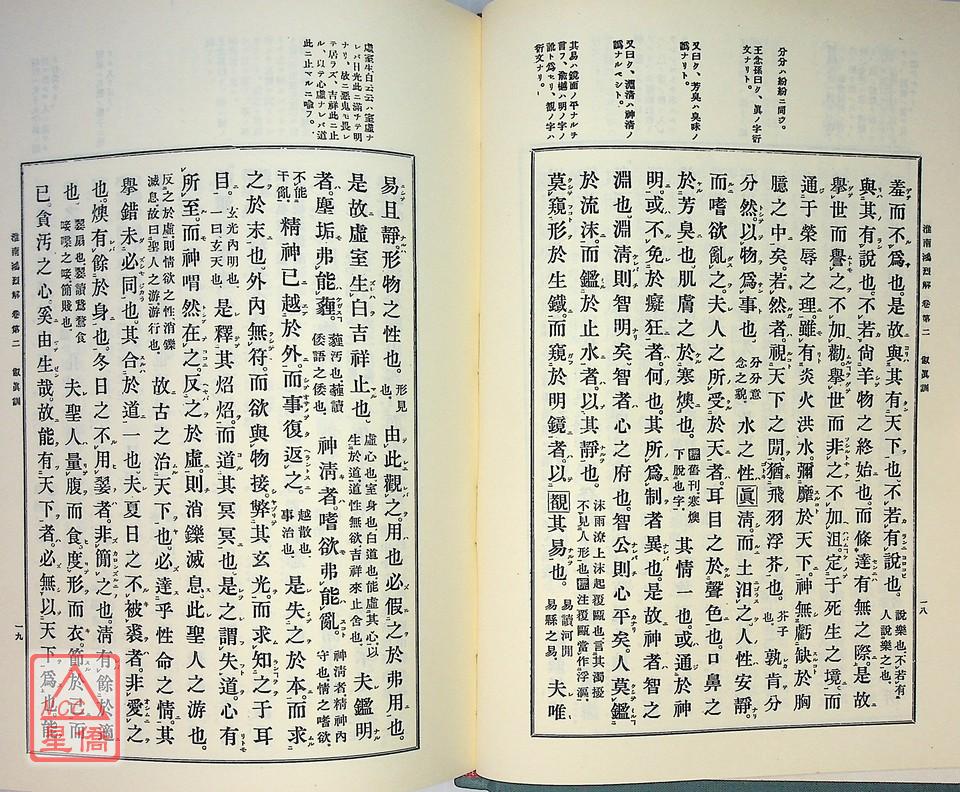 淮南鴻烈解 卷第二 俶眞訓
一八
分分ハ紛紛ニ同ウ。
王念孫曰ク、眞ノ字衍
文ナリト。
又曰ク、芳臭ハ臭味ノ
譌ナリト。
又曰ク、淵淸ハ神淸ノ
譌ナルベシト。
其易ハ鏡面ノ平ナルヲ
言フ、樾ハ明ノ字ノ
ト爲セリ、觀ノ字ハ
衍文ナリ。
羞而不爲也。是故與其有天下也、不若有說也。說樂也、不若有人說樂之也。
與其有說也、不若尙羊物之終始也、而條達有無之際。是故
擧世而譽之不加勸、擧世而非之不加沮、定于死生之境、而
通于榮辱之理、雖有炎火洪水彌靡於天下、神無虧缺於胸
臆之中矣。若然者、視天下之閒、猶飛羽浮芥也。芥子也。孰肯分
分然、以物爲事也。分分意念之貌 水之性眞淸、而土汨之、人性安靜、
而嗜欲亂之。夫人之所受於天者、耳目之於聲色也、口鼻之
於芳臭也、肌膚之於寒燠也。舊刊寒燠下脫也字。其情一也、或通於神
明、或不免於癡狂者、何也。其所爲制者異也。是故神者智之
淵也、淵淸則智明矣、智者心之府也、智公則心平矣。人莫鑑
於流沫、而鑑於止水者、以其靜也。沫雨潦上沫起覆甌也、言其濁擾不見人形也、注覆甌當作浮漚、
莫窺形於生鐵、而窺於明鏡者、以覩其易也。易讀河閒易縣之易、夫唯
易且靜、形物之性也。形見也。由此觀之、用也必假之於弗用也。
是故虛室生白、吉祥止也。虛心也、室身也、白道也、能虛其心以生於道、道性無欲、吉祥來止舍也、夫鑑明
者、塵垢弗能薶。薶汚也、薶讀倭語之倭也、神淸者、嗜欲弗能亂。神淸者、精神內守也、情之嗜欲、
不能干亂、精神已越於外、而事復返之。越散也、事治也、是失之於本、而求
之於末也。外內無符、而欲與物接、弊其玄光、而求知之于耳
目。玄光內明也、一曰玄天也、是釋其炤炤、而道其冥冥也、是之謂失道。心有
所至、而神喟然在之、反之於虛、則消鑠滅息、此聖人之游也。
反之於虛、則情欲之性消鑠滅息、故曰聖人之游、游行也、故古之治天下也、必達乎性命之情、其
擧錯未必同也、其合於道一也。夫夏日之不被裘者、非愛之
也、燠有餘於身也。冬日之不用翣者、非簡之也、淸有餘於適
也。翣扇也、翣讀鶩食唼喋之唼、簡賤也、夫聖人量腹而食、度形而衣、節於己而
已、貪汚之心、奚由生哉。故能有天下者、必無以天下爲也、能
虛室生白云云ハ室虛ナ
レバ日光此ニ滿チテ明
ナリ、故ニ惡鬼モ畏レ
テ居ラズ、吉祥此ニ止
ル、以テ心虛ナレバ道
此ニ止マルニ喩フ。
淮南鴻烈解 卷第二 俶眞訓
一九
NCC
星僑